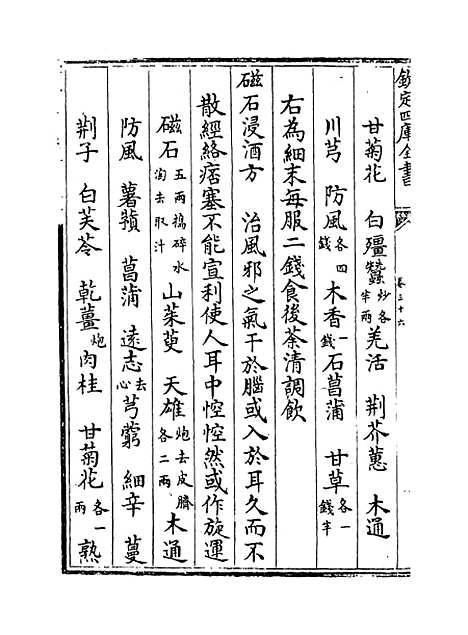 欽定四庫全書
卷三十六
甘菊花 白殭蠶炒各半兩羌活 荆芥蕙 木通
川芎 防風各四錢木香一錢石菖蒲 甘草各一錢半
右為細末每服二錢食後茶清調飲
磁石浸酒方 治風邪之氣干於腦或入於耳久而不
散經絡痞塞不能宣利使人耳中悾悾然或作旋運
磁石五兩搗碎水淘去取汁山茱萸 天雄炮去皮臍各二兩木通
防風 薯蕷 菖蒲 遠志去心芎藭 細辛 蔓
荆子 白茯苓 乾薑炮肉桂 甘菊花各一兩熟